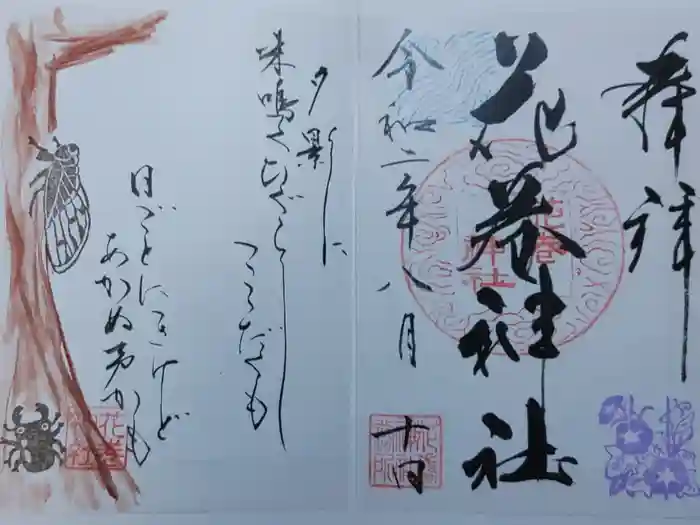 奉拝
花巻神社
花巻
神社
令和二年八月十日
夕影に
来鳴くひぐらし
ここだくも
日ごとにきけど
あかぬ声かも
花巻
神社